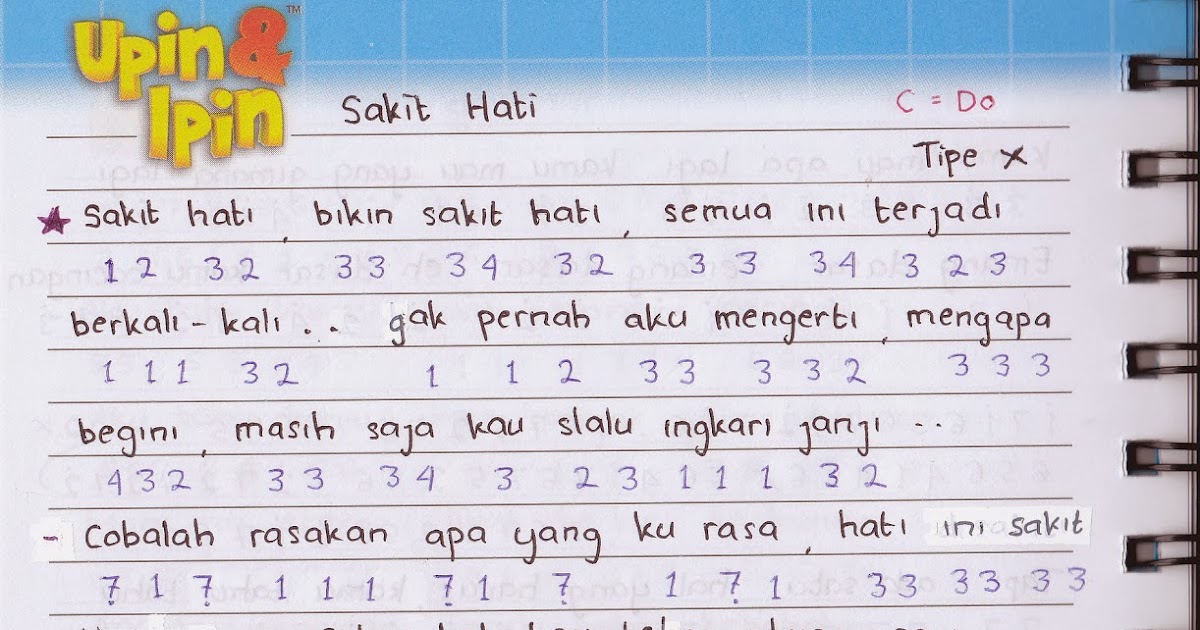 Upin & Ipin ™
Sakit Hati
C = Do
Tipe x
★ Sakit hati, bikin sakit hati, semua ini terjadi
1 2 3 2 3 3 3 4 3 2 3 3 3 4 3 2 3
berkali-kali .. gak pernah aku mengerti, mengapa
1 1 1 3 2 1 1 2 3 3 3 3 2 3 3 3
begini, masih saja kau slalu ingkari janji ..
4 3 2 3 3 3 4 3 2 3 1 1 1 3 2
- Cobalah rasakan apa yang ku rasa, hati ini sakit
7̣ 1 7̣ 1 1 1 7̣ 1 7̣ 1 7̣ 1 3 3 3 3 3 3